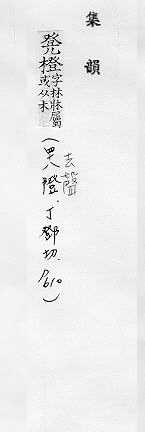 集韻
凳橙字林牀屬
或从木
去聲
(四八隥.丁鄧切.P610)